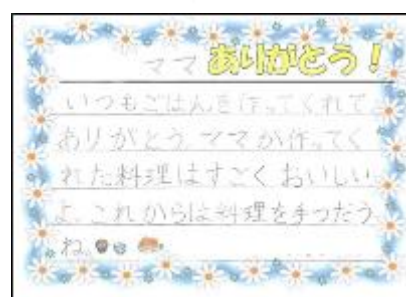 ママ ありがとう!
いつもごはんを作ってくれて
ありがとう。ママが作ってく
れた料理はすごくおいしい
よ。これからは料理を手つだう
ね。